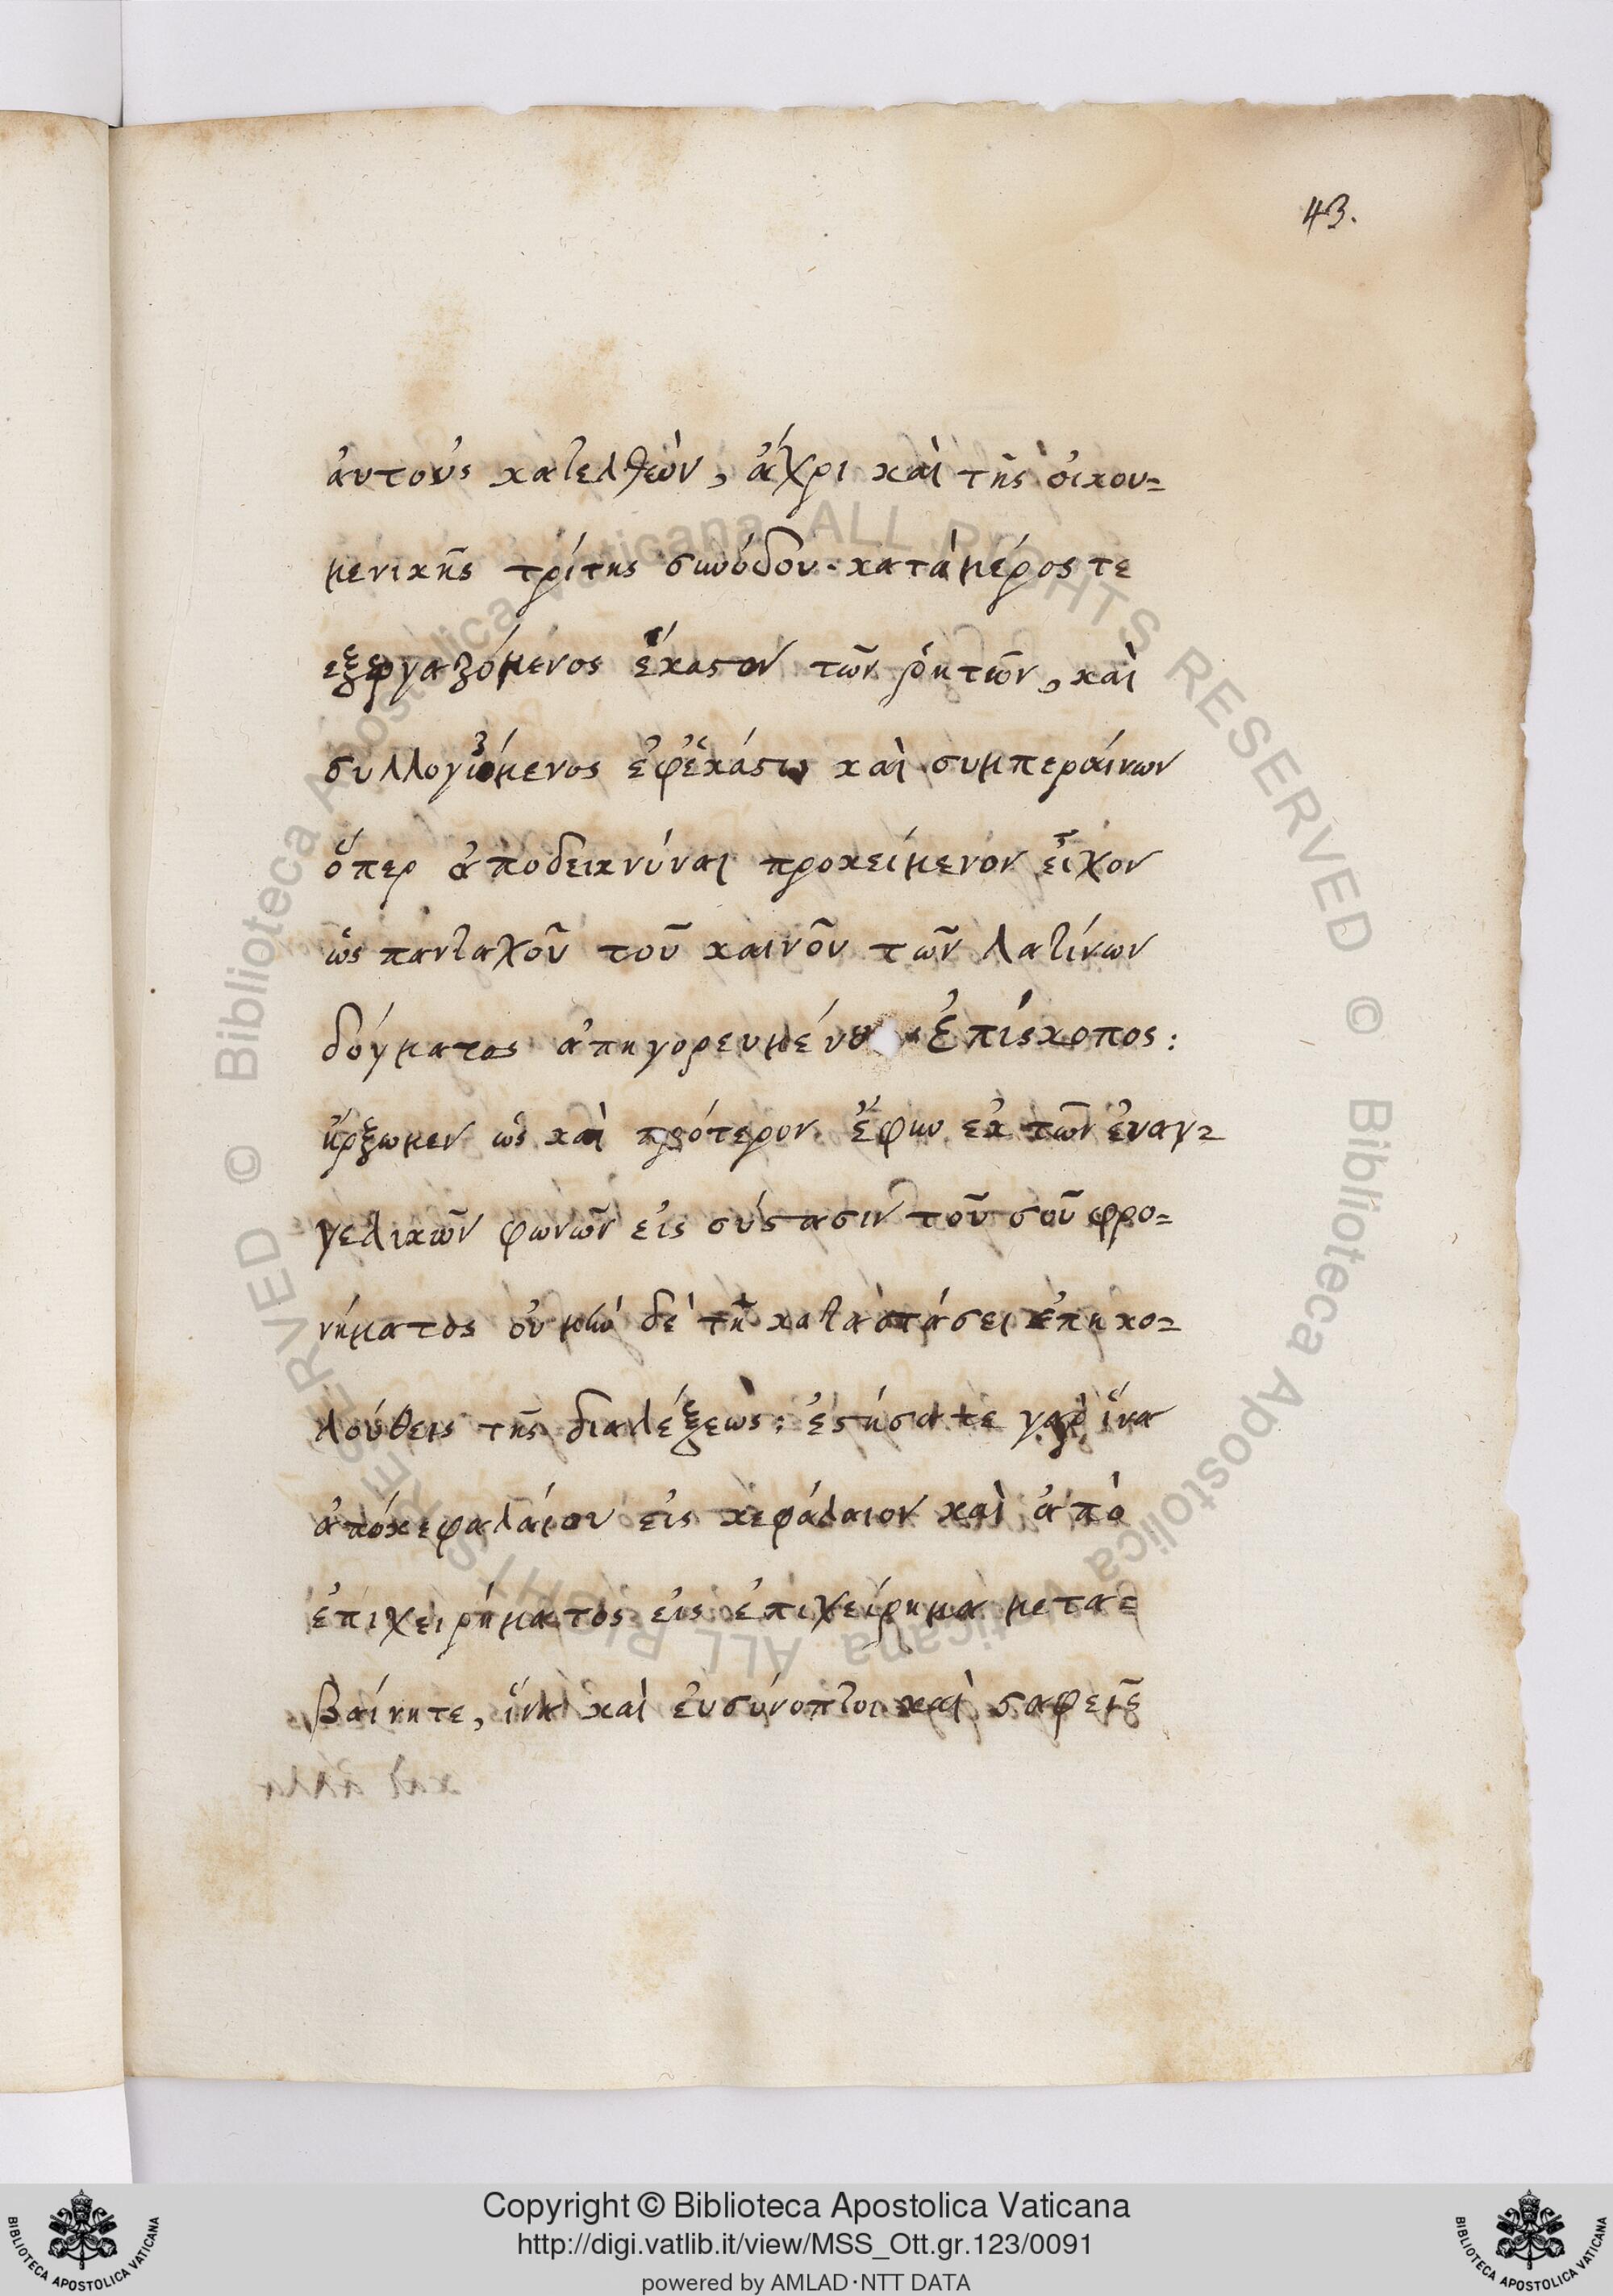 43.
ἀυτοὺς κατελθὼν, ἄχρι καὶ τῆς ὀικου=
μενικῆς τρίτης συνόδου. κατὰ μέρος τε
ἐξεργαζόμενος ἕκαστον τῶν ῥητῶν, καὶ
συλλογιζόμενος ἐφ' ἑκάστω καὶ συμπεράινων
ὅπερ ἀποδεικνύναι προκείμενον εἶχον
ὡς πανταχοῦ τοῦ καινοῦ τῶν λατίνων
δόγματος ἀπηγορευμένου. Ἐπίσκοπος:
ἤρξωμεν ὡς καὶ πρότερον ἔφην ἐκ τῶν ἐυαγ=
γελικῶν φωνῶν εἰς σύστασιν τοῦ σοῦ φρο=
νήματος ὀυ μὴν δὲ τῆ καταστάσει ἐπηκο=
λούθεις τῆς διαλέξεως: ἐστήσατε γαρ ἵνα
ἀπὸ κεφαλάιου εἰς κεφάλαιον καὶ ἀπὸ
ἐπιχειρήματος εἰς ἐπιχείρημα μετα=
βαίνητε, ἵνα καὶ ἐυσύνοπτοι καὶ σαφεῖς
Copyright © Biblioteca Apostolica Vaticana
http://digi.vatlib.it/view/MSS_Ott.gr.123/0091
powered by AMLAD·NTT DATA
BIBLIOTECA APOSTOLICA VATICANA
BIBLIOTECA APOSTOLICA VATICANA
© Biblioteca Apostolica Vaticana ALL RIGHTS RESERVED
© Biblioteca Apostolica Vaticana ALL RIGHTS RESERVED